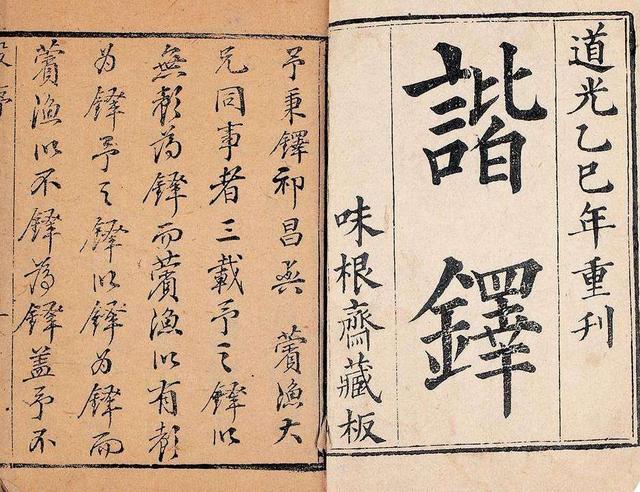 道光乙巳年重刊
諧鐸
味根齋藏板
予秉鐸祁昌與 薲漁大
兄同事者三載予之鐸以
無聲為鐸而薲漁以有聲
為鐸予之鐸以鐸為鐸而
薲漁以不鐸為鐸蓋予不